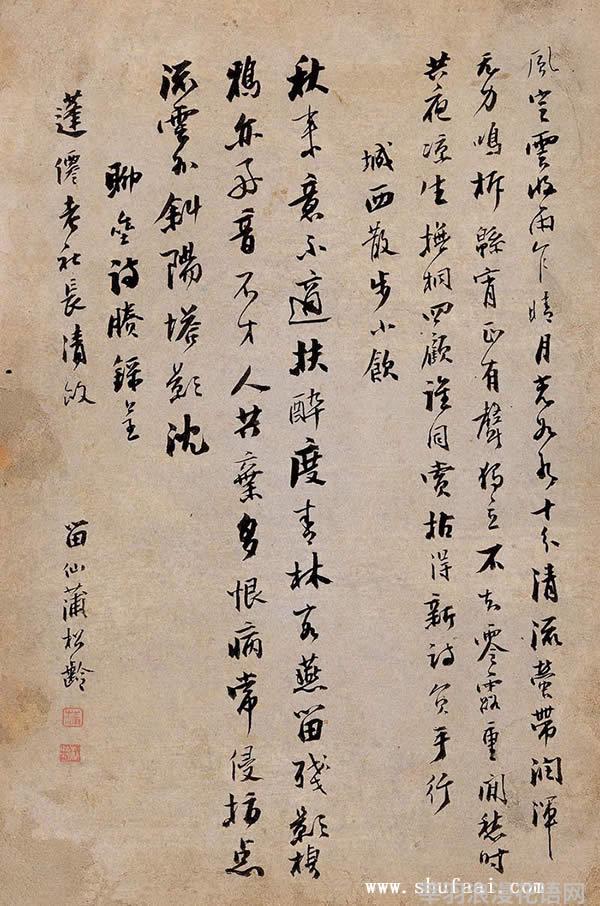 風定雲收雨乍晴月光如水十分清流螢帶潤渾
无力鳴柝縣宵正有聲獨立不知零露重閒愁時
共夜凉生撫桐四顧誰同賞拈得新詩負手行
城西散步小飲
秋来意不適扶醉度青林客燕留殘影栖
鴉亦好音不才人共棄多恨病常侵指点
流雲外斜陽塔影沈
聊 詩牘錄呈
蓬僊老社長清政
留仙蒲松齡
www.shufaai.com